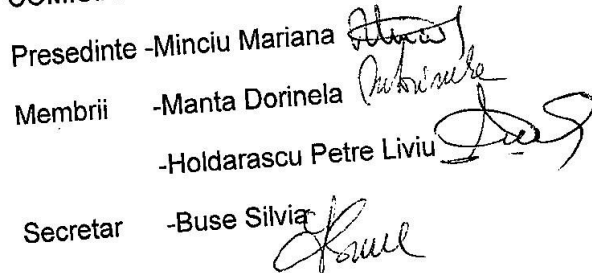 Presedinte -Minciu Mariana
Membrii -Manta Dorinela
-Holdarascu Petre Liviu
Secretar -Buse Silvia